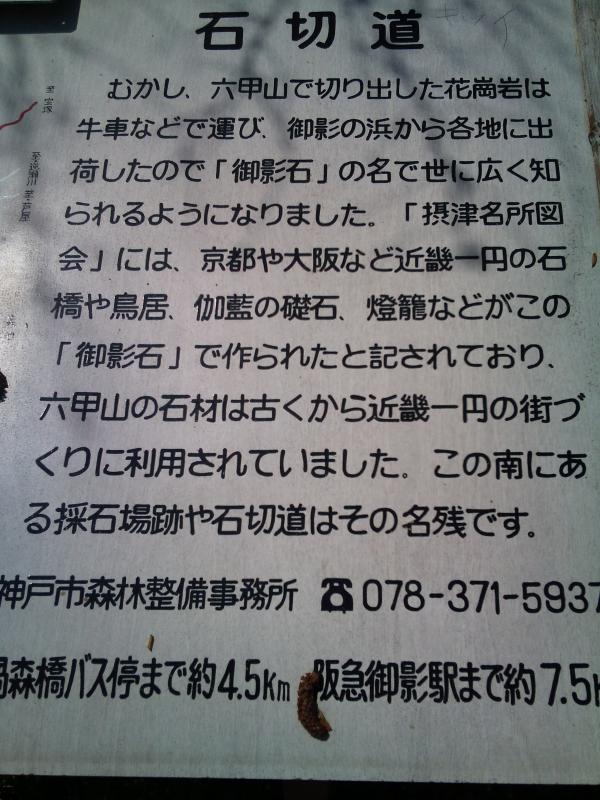 石切道
むかし、六甲山で切り出した花崗岩は
牛車などで運び、御影の浜から各地に出
荷したので「御影石」の名で世に広く知
られるようになりました。「摂津名所図
会」には、京都や大阪など近畿一円の石
橋や鳥居、伽藍の礎石、燈籠などがこの
「御影石」で作られたと記されており、
六甲山の石材は古くから近畿一円の街づ
くりに利用されていました。この南にあ
る採石場跡や石切道はその名残です。
神戸市森林整備事務所 ☎078-371-5937
森橋バス停まで約4.5Km 阪急御影駅まで約7.5K
至 宝塚